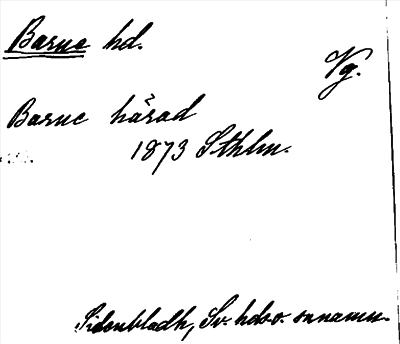 Barne hd.
Vg.
Barne härad
1873 Sthlm.
Sidenbladh, Sv. hds o. snnamn.